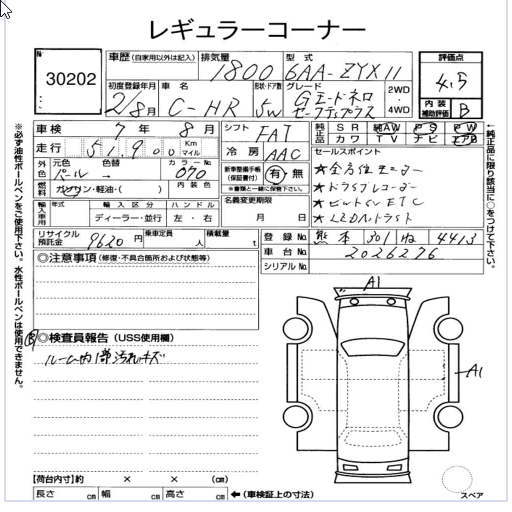 レギュラーコーナー
No.
30202
車歴 (自家用以外は記入)
排気量
1800
型式
6AA-ZYX11
評価点
4.5
初度登録年月
2/8月
車名
C-HR
形状・ドア数
5W
グレード
Gモードネロ
セーフティプラス
2WD
4WD
内装
補助評価
B
車検 7年 8月
走行 51,900 Km マイル
シフト FAT
冷房 AAC
純正品 SR 純AW PS PW
カワ TV ナビ エアB
セールスポイント
★全方位モニター
★ドライブレコーダー
★ビルトインETC
★LEDヘッドライト
外色
元色 パール
色替 →
カラーNo. 070
燃料 ガソリン・軽油・( )
内装色
新車整備手帳(保証書付) 有・無
※書類と一緒に保管下さい。
名義変更期限
月 日
輸入車用
年式
輸入区分
ディーラー・並行
ハンドル
左・右
リサイクル預託金 9620円
乗車定員 人
積載量 t
登録No. 熊本 301 ね 4413
車台No. 2026276
シリアルNo.
◎注意事項(修復・不具合箇所および状態等)
Ⓑ◎検査員報告 (USS使用欄)
ルーム内1部汚れキズ
A1
A1
スペア
【荷台内寸】約 × × (cm)
長さ cm 幅 cm 高さ cm ←(車検証上の寸法)
※必ず油性ボールペンをご使用下さい。水性ボールペンは使用できません。
←純正品に限り該当に○をつけて下さい。